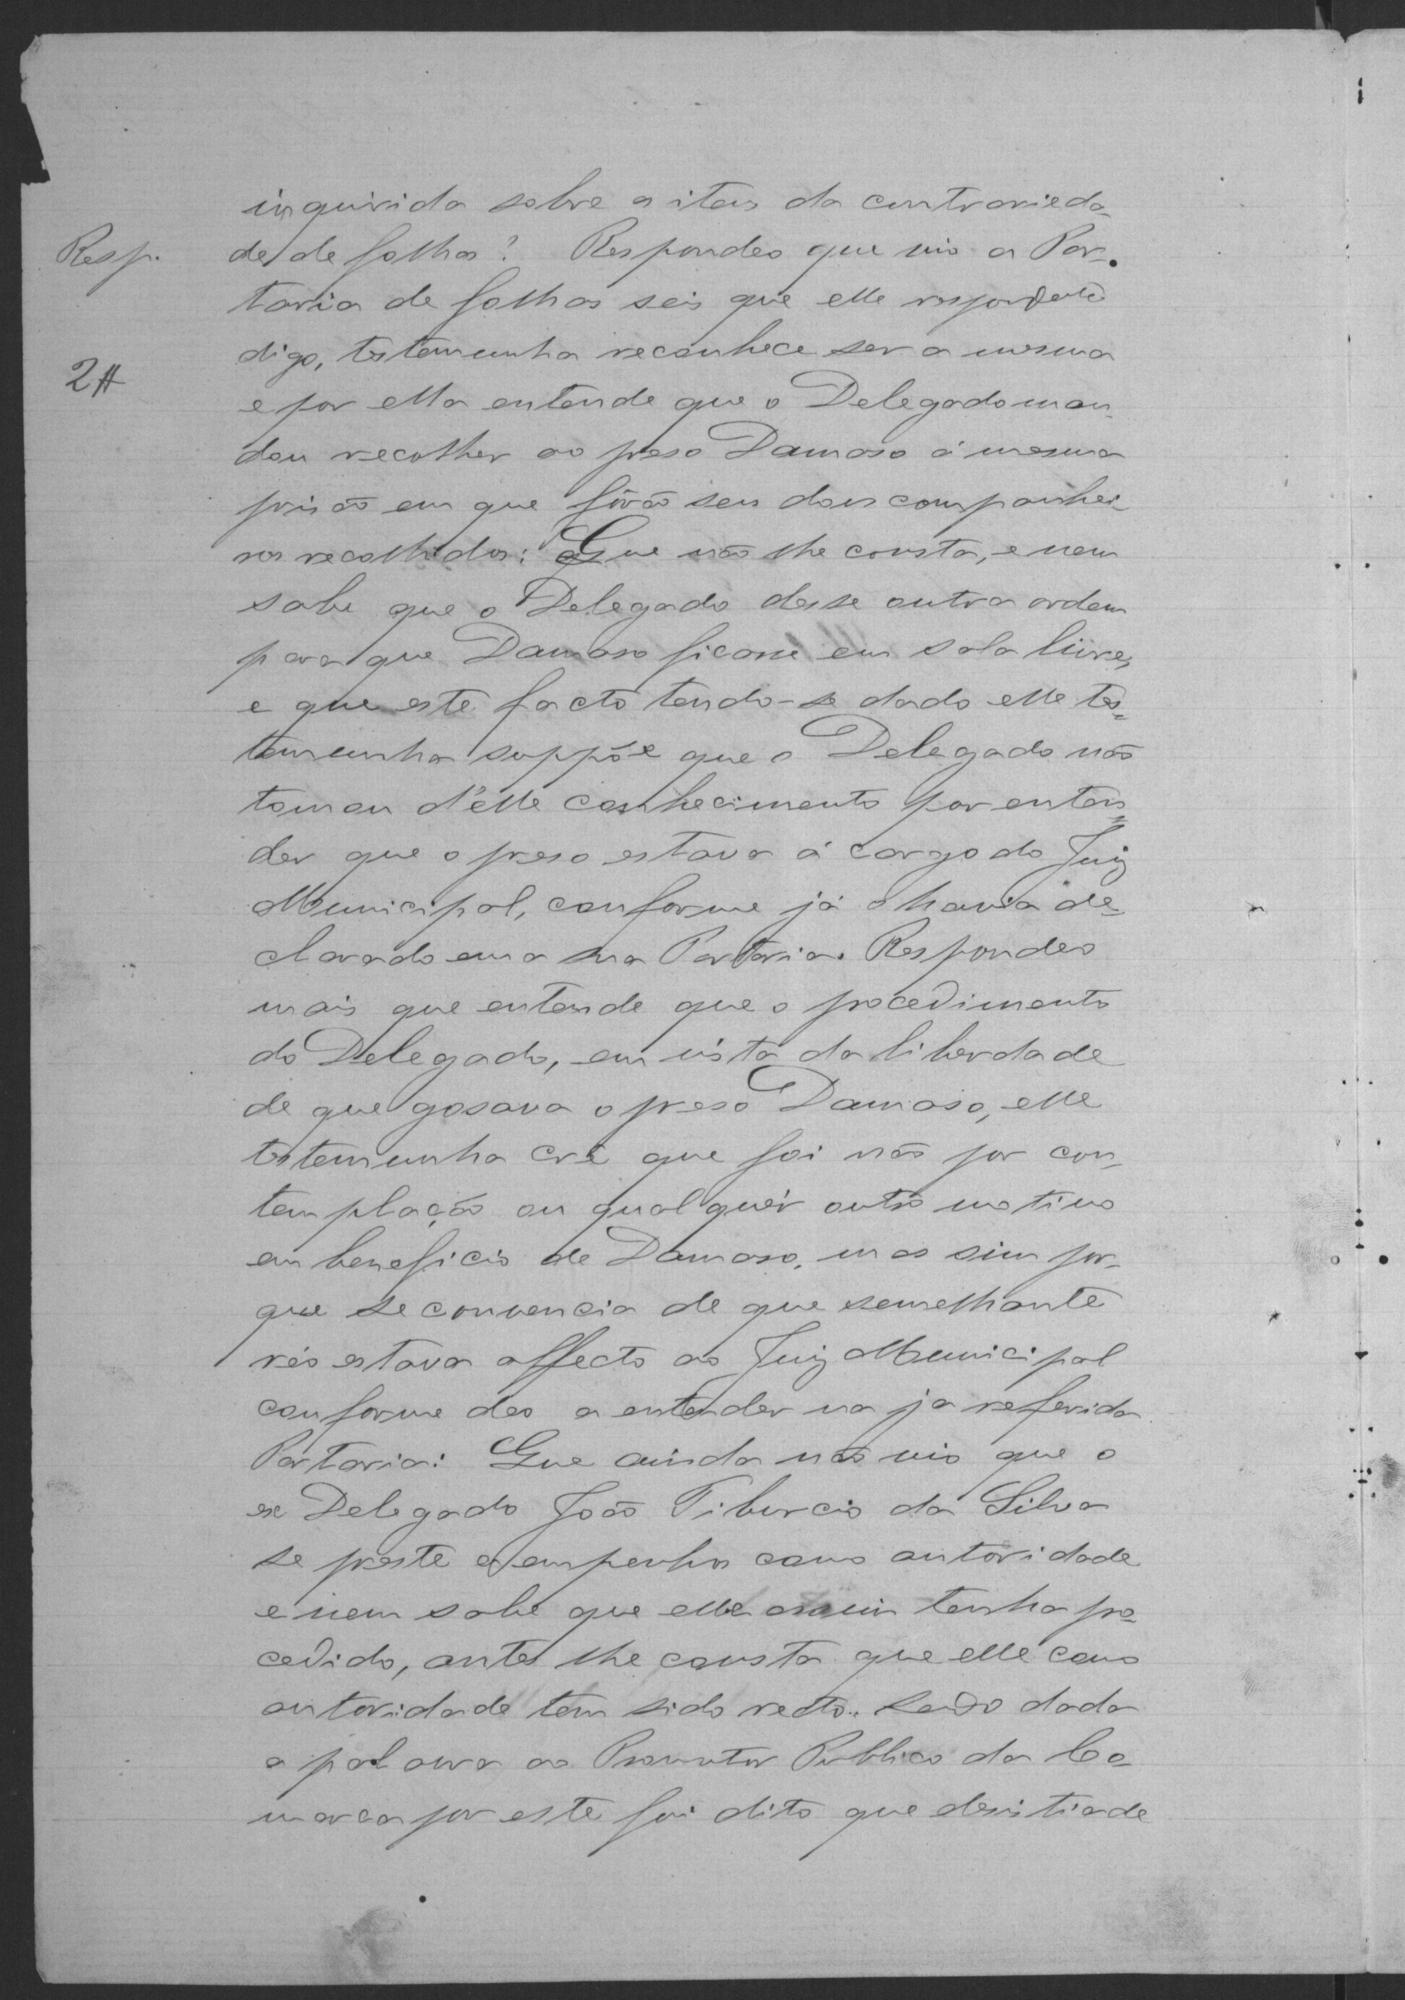 inquirida sobre os itens da contrarieda-
Resp. de de folhas? Respondeo que vio a Por-
taria de folhas seis que elle respondente
digo, testemunha reconhece ser a mesma
2#
e por ella entende que o Delegado man-
dou recolher ao preso Damaso á mesma
prisão em que fôrão seus dous companhei-
ros recolhidos: Que não lhe consta, e nem
sabe que o Delegado desse outra ordem
para que Damaso ficasse em sala livre,
e que este facto tendo-se dado elle tes-
temunha suppõe que o Delegado não
tomou d'elle conhecimento por enten-
der que o preso estava á cargo do Juiz
Municipal, conforme já o havia de-
clarado em a sua Portaria. Respondeo
mais que entende que o procedimento
do Delegado, em vista da liberdade
de que gosava o preso Damaso, elle
testemunha crê que foi não por con-
templação ou qualquér outro motivo
em beneficio de Damaso, mas sim por-
que se convencia de que semelhante
réo estava affecto ao Juiz Municipal
conforme deo a entender na ja referida
Portaria: Que ainda não vio que o
ex Delegado João Tiburcio da Silva
se preste a empenhos como autoridade
e nem sabe que elle assim tenha pro-
cedido, antes lhe consta que elle como
autoridade tem sido recto. Sendo dada
a palavra ao Promotor Publico da Co-
marca por este foi dito que desistia de